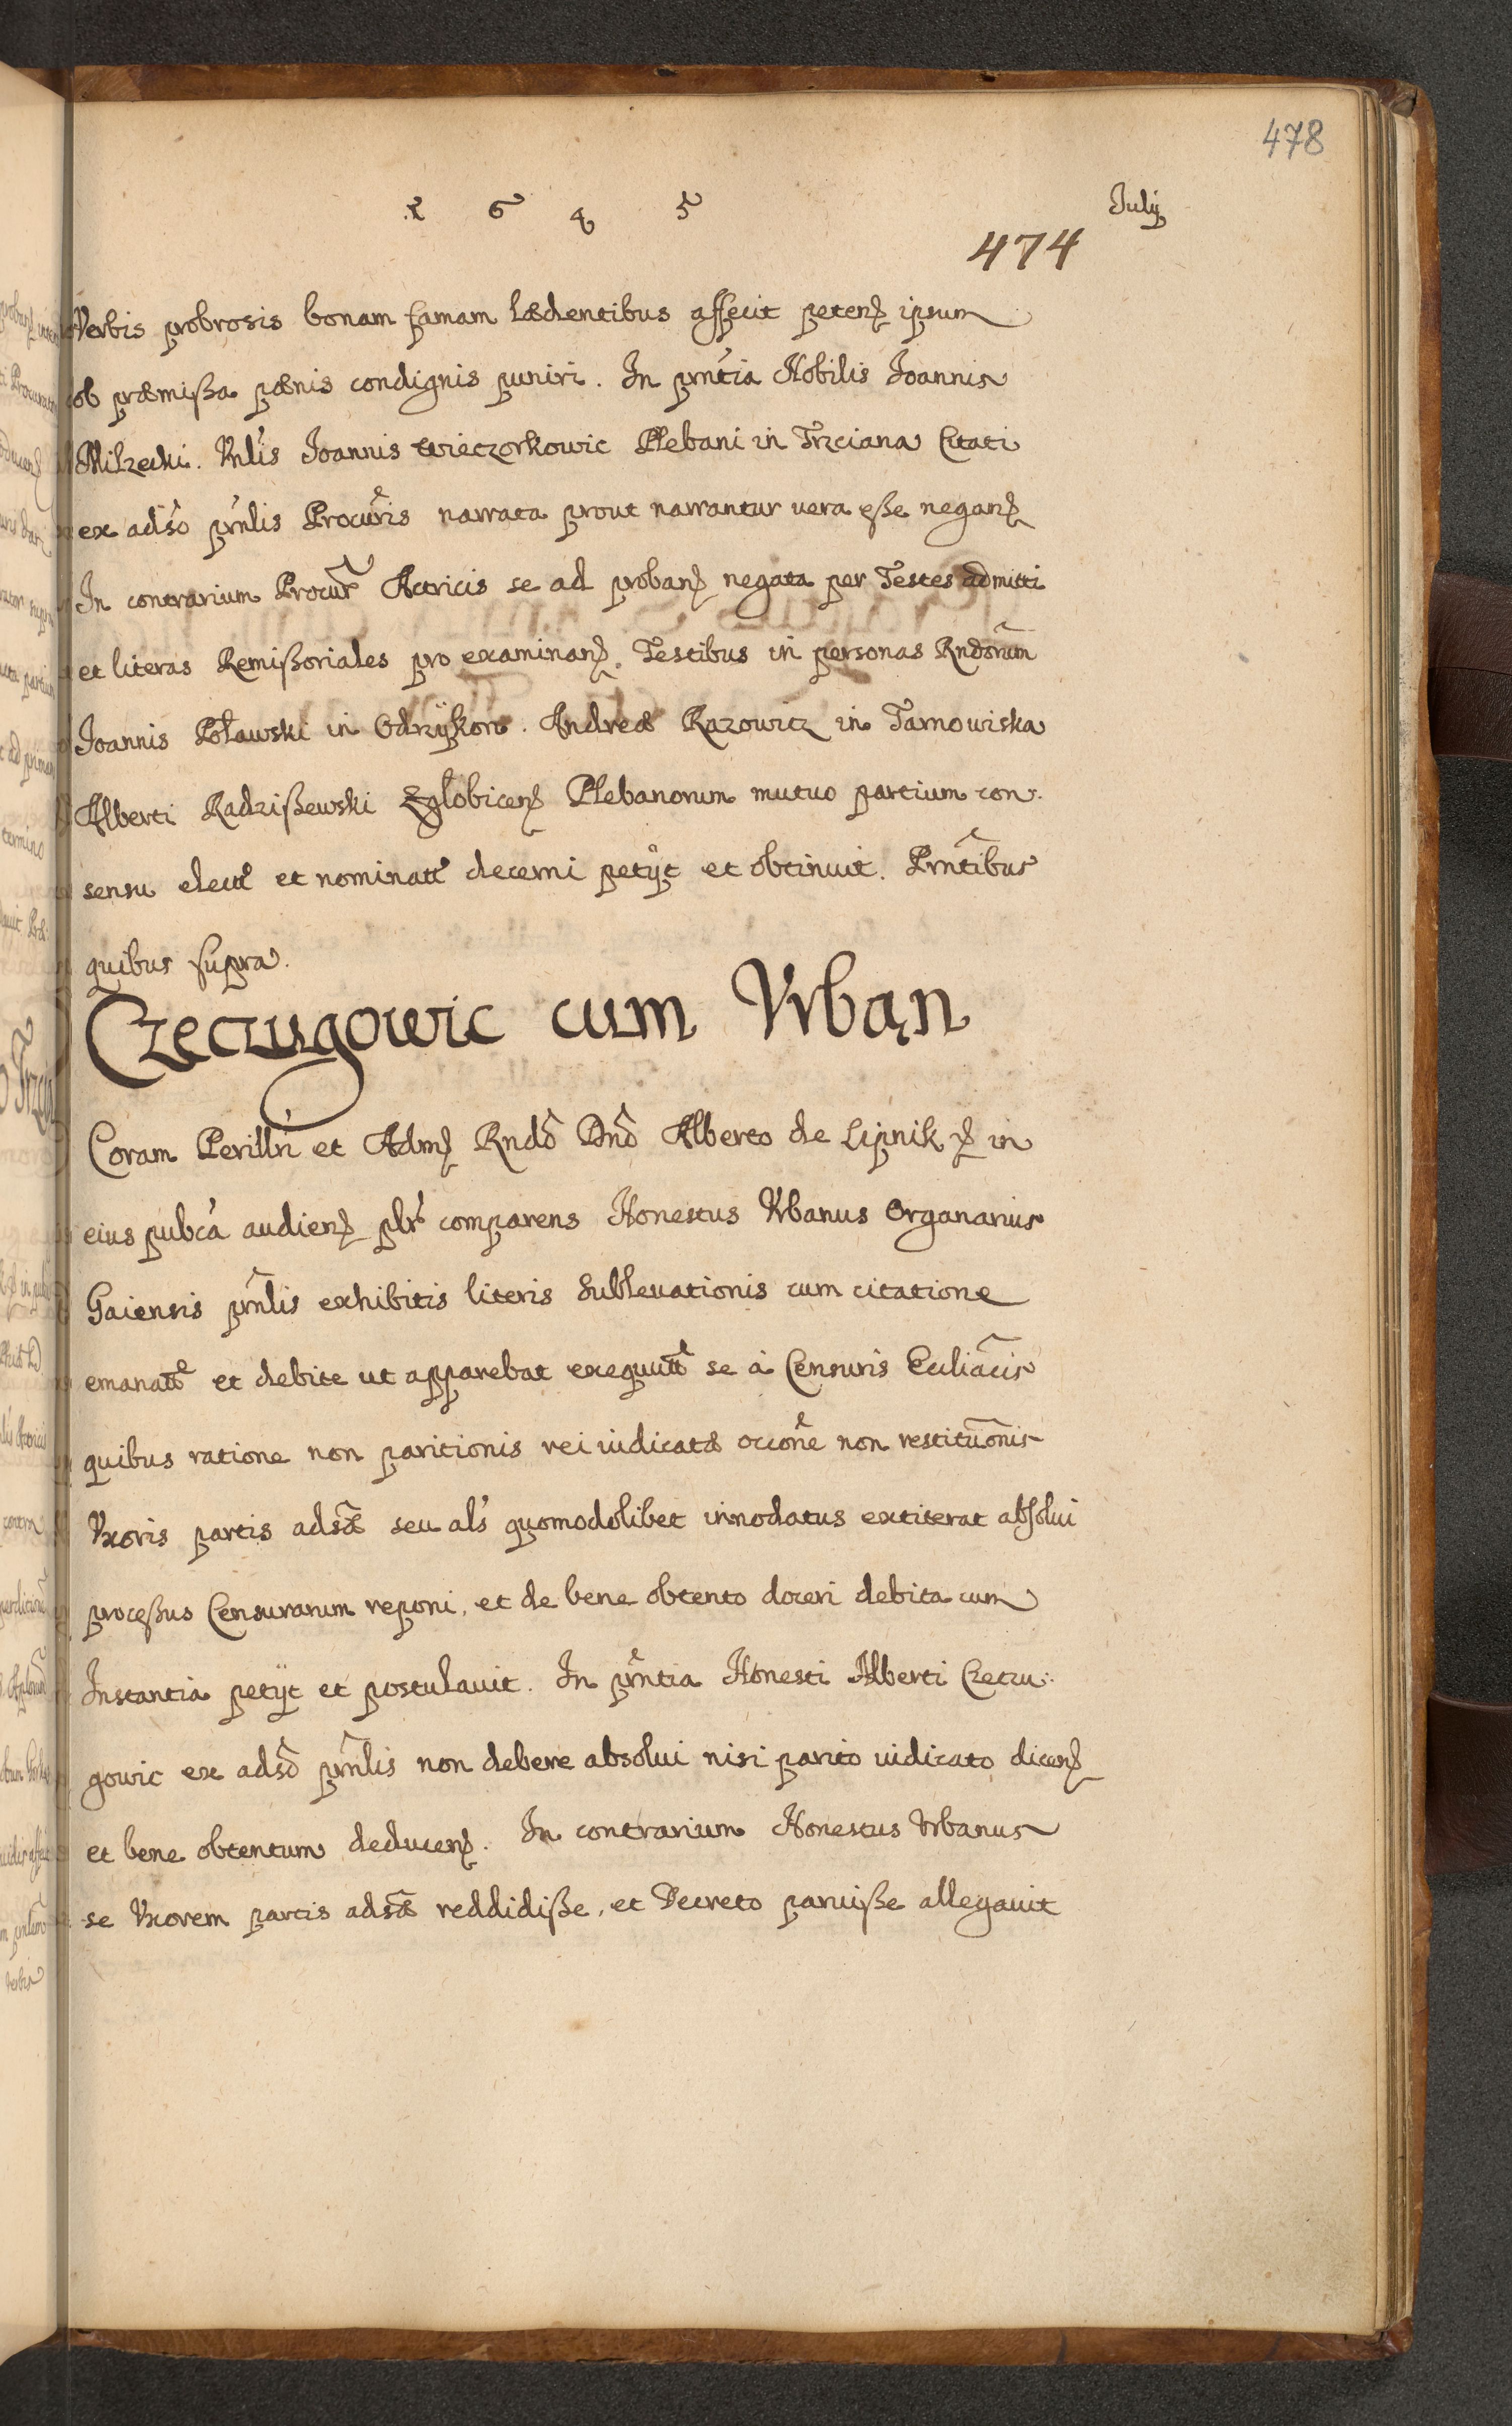 478
1 6 4 5 Julij
474
Verbis probrosis bonam famam lædentibus affecit petenꝫ ipsum
ob præmißa pænis condignis puniri. In prńtia Nobilis Joannis
Milzecki. Vnlis Joannis Wieczorkowic Plebani in Trzciana Citati
ex adso prńlis Procuris narrata prout narrantur vera eße neganꝫ
In contrarium Procur Actricis se ad probanꝫ negata per Testes admitti
et literas Remißoriales pro examinanꝫ. Testibus in personas Rndorum
Joannis Poławski in Odrzÿkon. Andreæ Razowicz in Tarnowiska
Alberti Radzißewski Zgłobicenꝫ Plebanorum mutuo partium con:
sensu elect et nominatt decerni petÿt et obtinuit. Prntibus
quibus supra.
Czeczugowic cum Vrbąn
Coram Perillri et Admꝫ Rndo Dno Alberto de Lipnik ꝫ in
eius pubca audienꝫ plr comparens Honestus Vrbanus Organarius
Gaiensis prnlis exhibitis literis Subleuationis cum citatione
emanatt et debite ut apparebat exequutt se à Censuris Eccliacis
quibus ratione non paritionis rei iudicatæ occone non restituonis
Vxoris partis adsæ seu als quomodolibet innodatus extiterat absolui
proceßus Censurarum reponi, et de bene obtento doceri debita cum
Instantia petÿt et postulauit. In prntia Honesti Alberti Czeczu:
gowic ex adso prnlis non debere absolui nisi parito iudicato dicenꝫ
et bene obtentum deducenꝫ. In contrarium Honestus Vrbanus
se Vxorem partis adsæ reddidiße, et Decreto paruiße allegauit